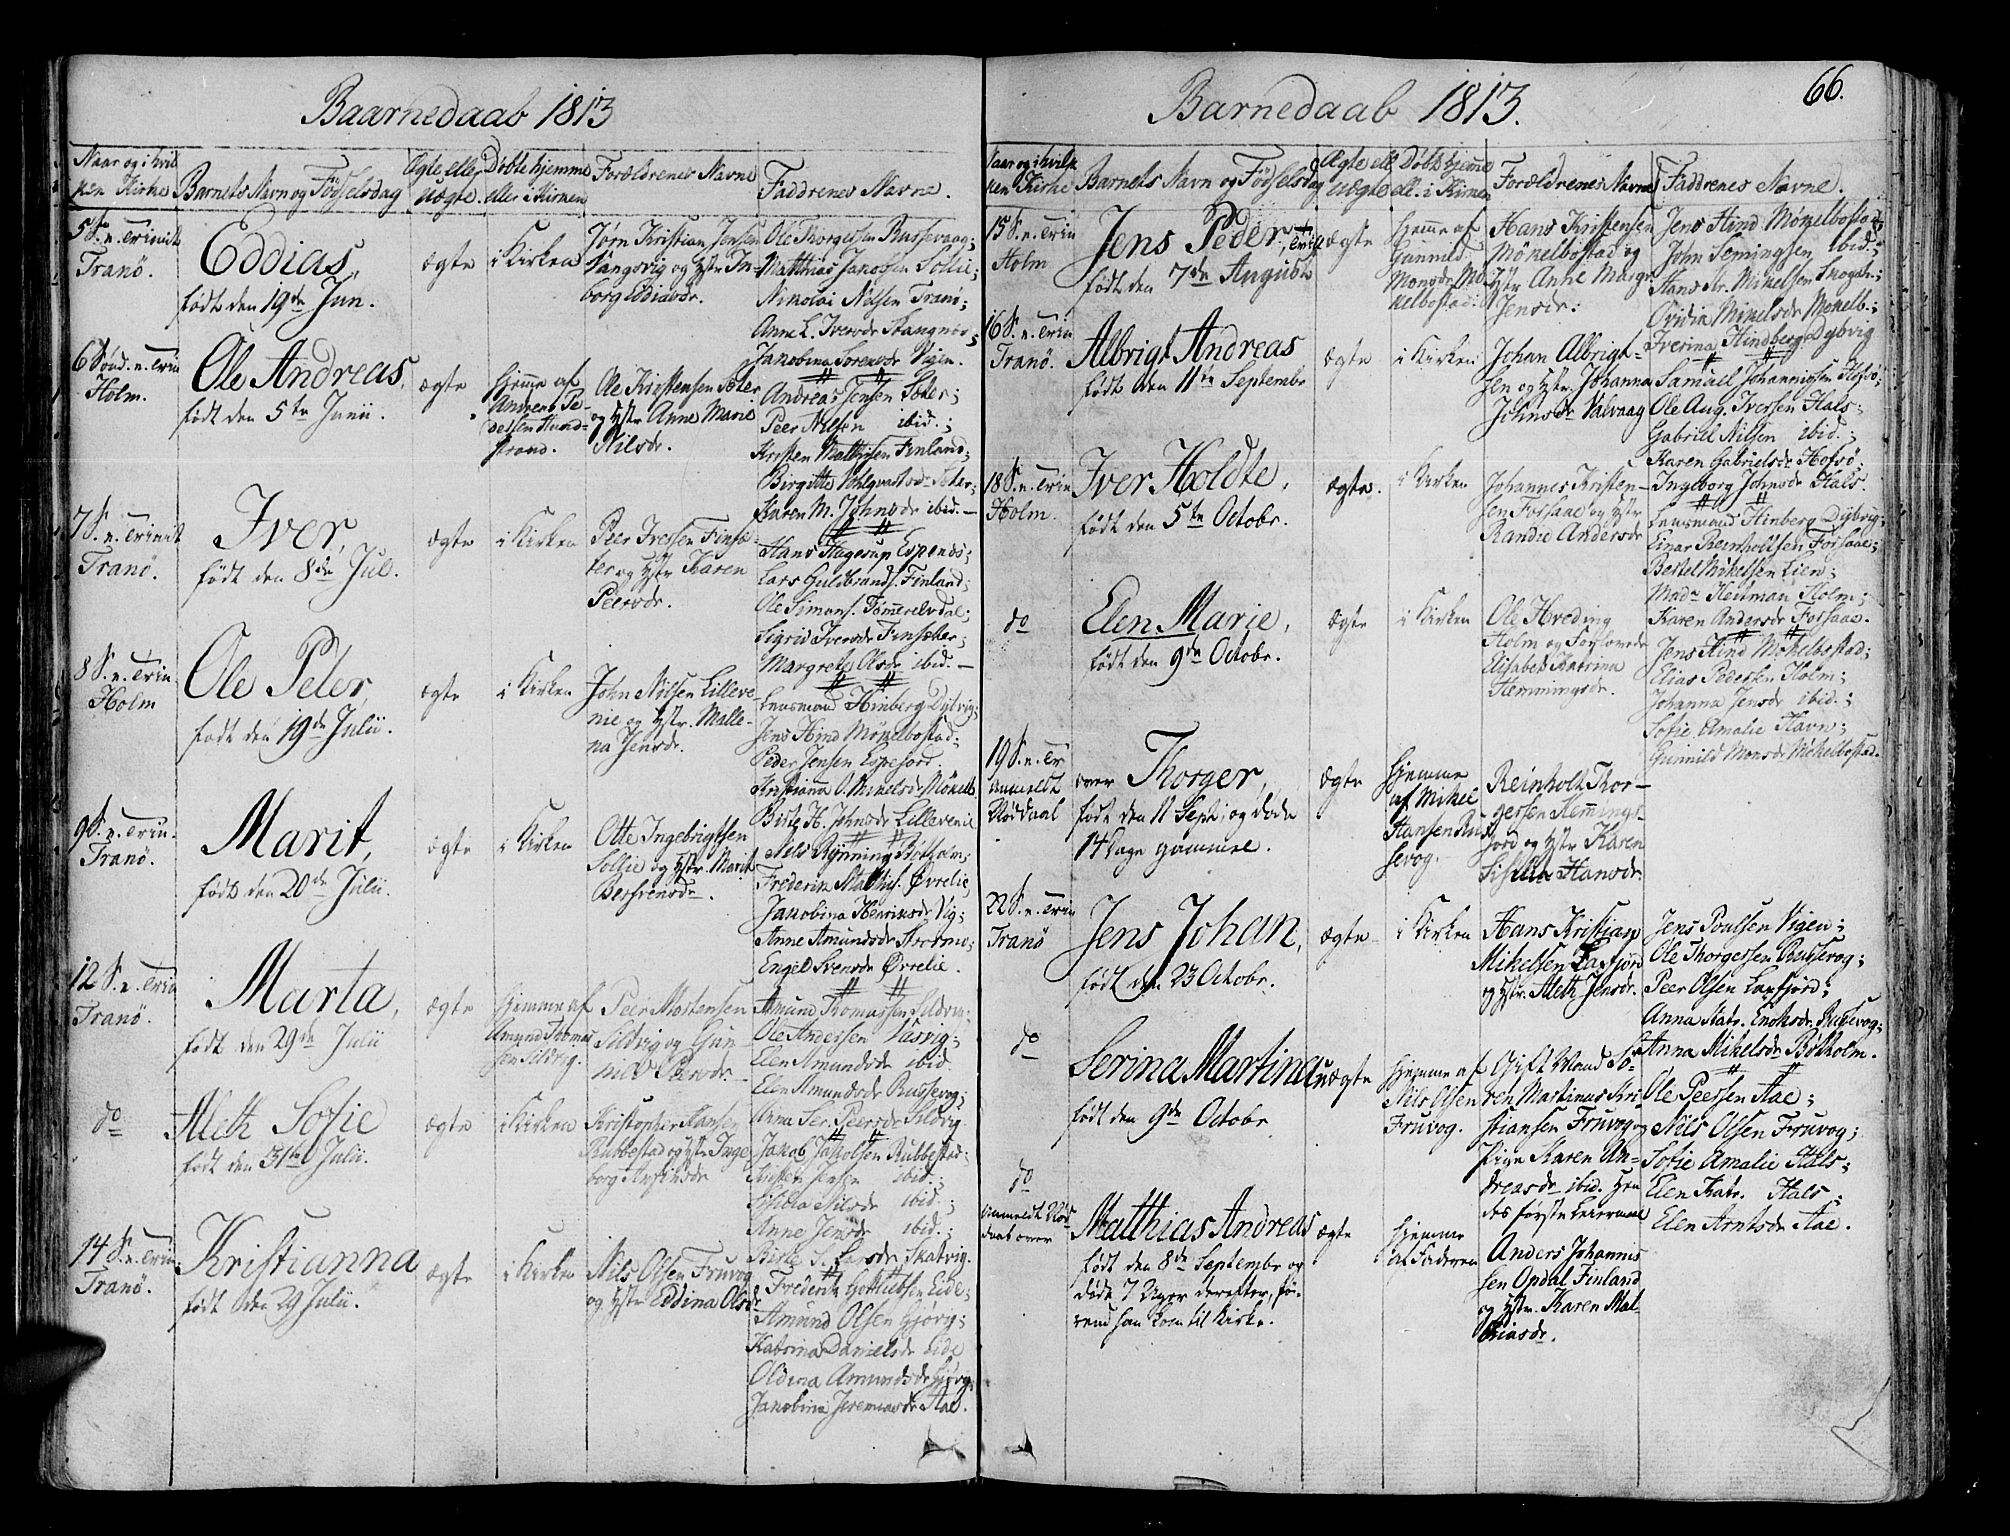 Baarnedaab 1813
Naar og i hvil
ken Kirke
Barnets Navn og Fødselsdag
Ægte eller
Uægte.
Døbte hjemme
eller i Kirken
Forældrenes Navne
Faddrenes Navne.
5 S. n. Trinit
Tranø.
Eddias,
født den 19de Jun.
ægte
i Kirken
Jørn Kristian Jensen
Vangsvig og Hstr. In-
borg Eddiasdr.
Ole Thorgersen Russevaag;
Matthias Jakobsen Sollie;
Nikolai Nilsen Tranø;
Anne L. Iversdr Stangnes;
Jakobina Sorensdr Vigen.
6 Sønd. n. Trin
Holm.
Ole Andreas,
født den 5te Junii.
ægte
hjemme af
Andreas Pe-
dersen Hund-
strand.
Ole Kristensen Sæter
og Hstr Anne Marie
Nilsdr.
Andreas Jensen Sæter;
Peer Nilsen ibid.;
Kristen Matthisen Finland;
Birgitte Sæter;
Karen M. Johnsdr ibid.
7 S. n. Trinit
Tranø.
Iver,
født den 8de Jul.
ægte
i Kirken
Peer Iversen Finsæ-
ter og Hstr Karen
Peersdr.
Hans Hagerup Espenes;
Lars Guldbrands. Finland;
Ole Simons. Tømmerelvdal;
Sigrid Iversdr Finsæter;
Margrete Olsdr ibid.
8 S. n. Trin.
Holm
Ole Peter,
født den 19de Julii.
ægte
i Kirken
John Nilsen Lilleve-
nie og Hstr. Malle-
na Jensdr.
Lensmand Hinberg Dybvig;
Jens Hind Mökelbostad;
Peder Jensen Espejord.
Kristianna O. Mikelsdr Mökelb
Birte H. Johnsdr Lillevenie
9 S. n. Trin.
Tranø.
Marit,
født den 20de Julii.
ægte
i Kirken
Otte Ingebrigtsen
Sollie og Hstr. Marit
Bersvensdr.
Nels Rynning Botholm;
Frederik Matthis. Øvrelie,
Jakobina Henriksdr Vig;
Anne Amundsdr Strømo;
Engel Svensdr Øvrelie.
12 S. n. Trin
Tranø.
Marta,
født den 29de Julii
ægte
hjemme af
Amund Tomas
sen Sildvig.
Peer Mortensen
Sildvig og Gun-
nild Peersdr.
Amund Thomassen Sildvig;
Ole Andersen Vasvig;
Elen Amundsdr ibid.
Elen Amundsdr Russevog;
Anna Ser. Peersdr Sildvig.
do
Aleth Sofie
født den 31te Julii.
ægte
i Kirken
Kristopher Hansen
Rubbestad og Hstr Inge
borg Ansfinsdr
Jakob Jakobsen Rubbestad;
Kristen Jensen ibid.;
Sisela Nilsdr ibid.;
Anne Jensdr ibid.;
Birte S. Larsdr Skatvig.
14 S. n. Trin.
Tranø.
Kristianna
født den 29 Julii.
ægte
i Kirken
Nils Olsen Fruvog
og Hstr Eddina Olsdr
Frederik Gotlibsen Eide;
Amund Olsen Gjövig;
Katrina Danielsdr Eide
Oldina Amundsdr Gjövig,
Jakobina Jeremiasdr Aae.
Barnedaab 1813.
66.
Naar og i hvilk
en Kirke
Barnets Navn og Fødselsdag
Ægte ell.
uægte
Døbt hjemme
ell. i Kirken
Forældrenes Navne
Faddrenes Navne.
15 S. n. Trin
Holm
Jens Peder,
født den 7de August
ægte
hjemme af
Gunnild
Monsdr Mö-
kelbostad
Hans Kristensen
Mökelbostad og
Hstr Anne Margr.
Jensdr:
Jens Hind Mökelbostad;
John Semingsen ibid.;
Hans Kr. Mikelsen Skogen;
Ovidia Mikelsdr Mökelb.;
Iverina Hindberg Dybvig
16 S. n. Trin
Tranö.
Albrigt Andreas
født den 11te Septembr
ægte
i Kirken
Johan Albrigt-
sen og Hstr. Johanna
Johnsdr Valvaag
Samuel Johannissen Hofsö;
Ole Aug. Iversen Hals;
Gabriel Nilsen ibid.;
Karen Gabrielsdr Hofsö;
Ingeborg Johnsdr Hals.
18 S. n. Trin
Holm.
Iver Holdte,
født den 5te Octobr.
ægte.
i Kirken
Johannes Kristen-
sen Forsaae og Hstr
Randie Andersdr
Lensmand Hinberg Dybvig;
Einar Reinholtsen Forsaae;
Bertel Mikelsen Lien;
Made Heitman Holm;
Karen Andersdr Forsaae.
do
Elen Marie,
født den 9de Octobr.
ægte
i Kirken
Ole Hveding
Holm og Forlovede
Elisabet Katrina
Hemmingsdr.
Jens Hind Mökelbostad;
Elias Pedersen Holm;
Johanna Jensdr ibid.;
Sofie Amalie Havn;
Gunnild Monsdr Mökelbostad.
19 S. n. Tr
anmeldt
Röddaab
over Thorger,
født den 11 Sept: og døde
14 Dage gammel.
ægte
hjemme
af Mikel
Hansen Rus-
sevog.
Reinholt Thor-
gersen Hemmings-
jord og Hstr. Karen
Sisilla Hansdr.
22 S. n. Trin
Tranø
Jens Johan,
født den 23 Octobr.
ægte
i Kirken
Hans Kristian
Mikelsen Laxfjord
og Hstr. Aleth Jensdr.
Jens Poulsen Vigen;
Ole Thorgersen Russevog;
Peer Olsen Laxfjord;
Anna Katr. Enoksdr. Russevog;
Anna Mikelsdr Botholm.
do
Serina Martina
født den 9de Octobr
uægte
hjemme af
Nils Olsen
Fruvog.
Gift Mand Sö-
ren Martinus Kri-
stiansen Fruvog og
Pige Karen An-
dreasdr ibid. hen
des første Leiermaal
Ole Peersen Aae;
Nils Olsen Fruvog;
Sofie Amalie Hals;
Elen Katr. Hals;
Elen Arntsdr Aae.
do
Anmeldt Röd
daab over
Matthias Andreas
født den 8de Septembr og
døde 7 Uger derefter, fö-
rend han kom til Kirke.
ægte
hjemme
af Faderen
Anders Johannis
sen Opdal Finland
og Hstr. Karen Mat-
thiasdr.